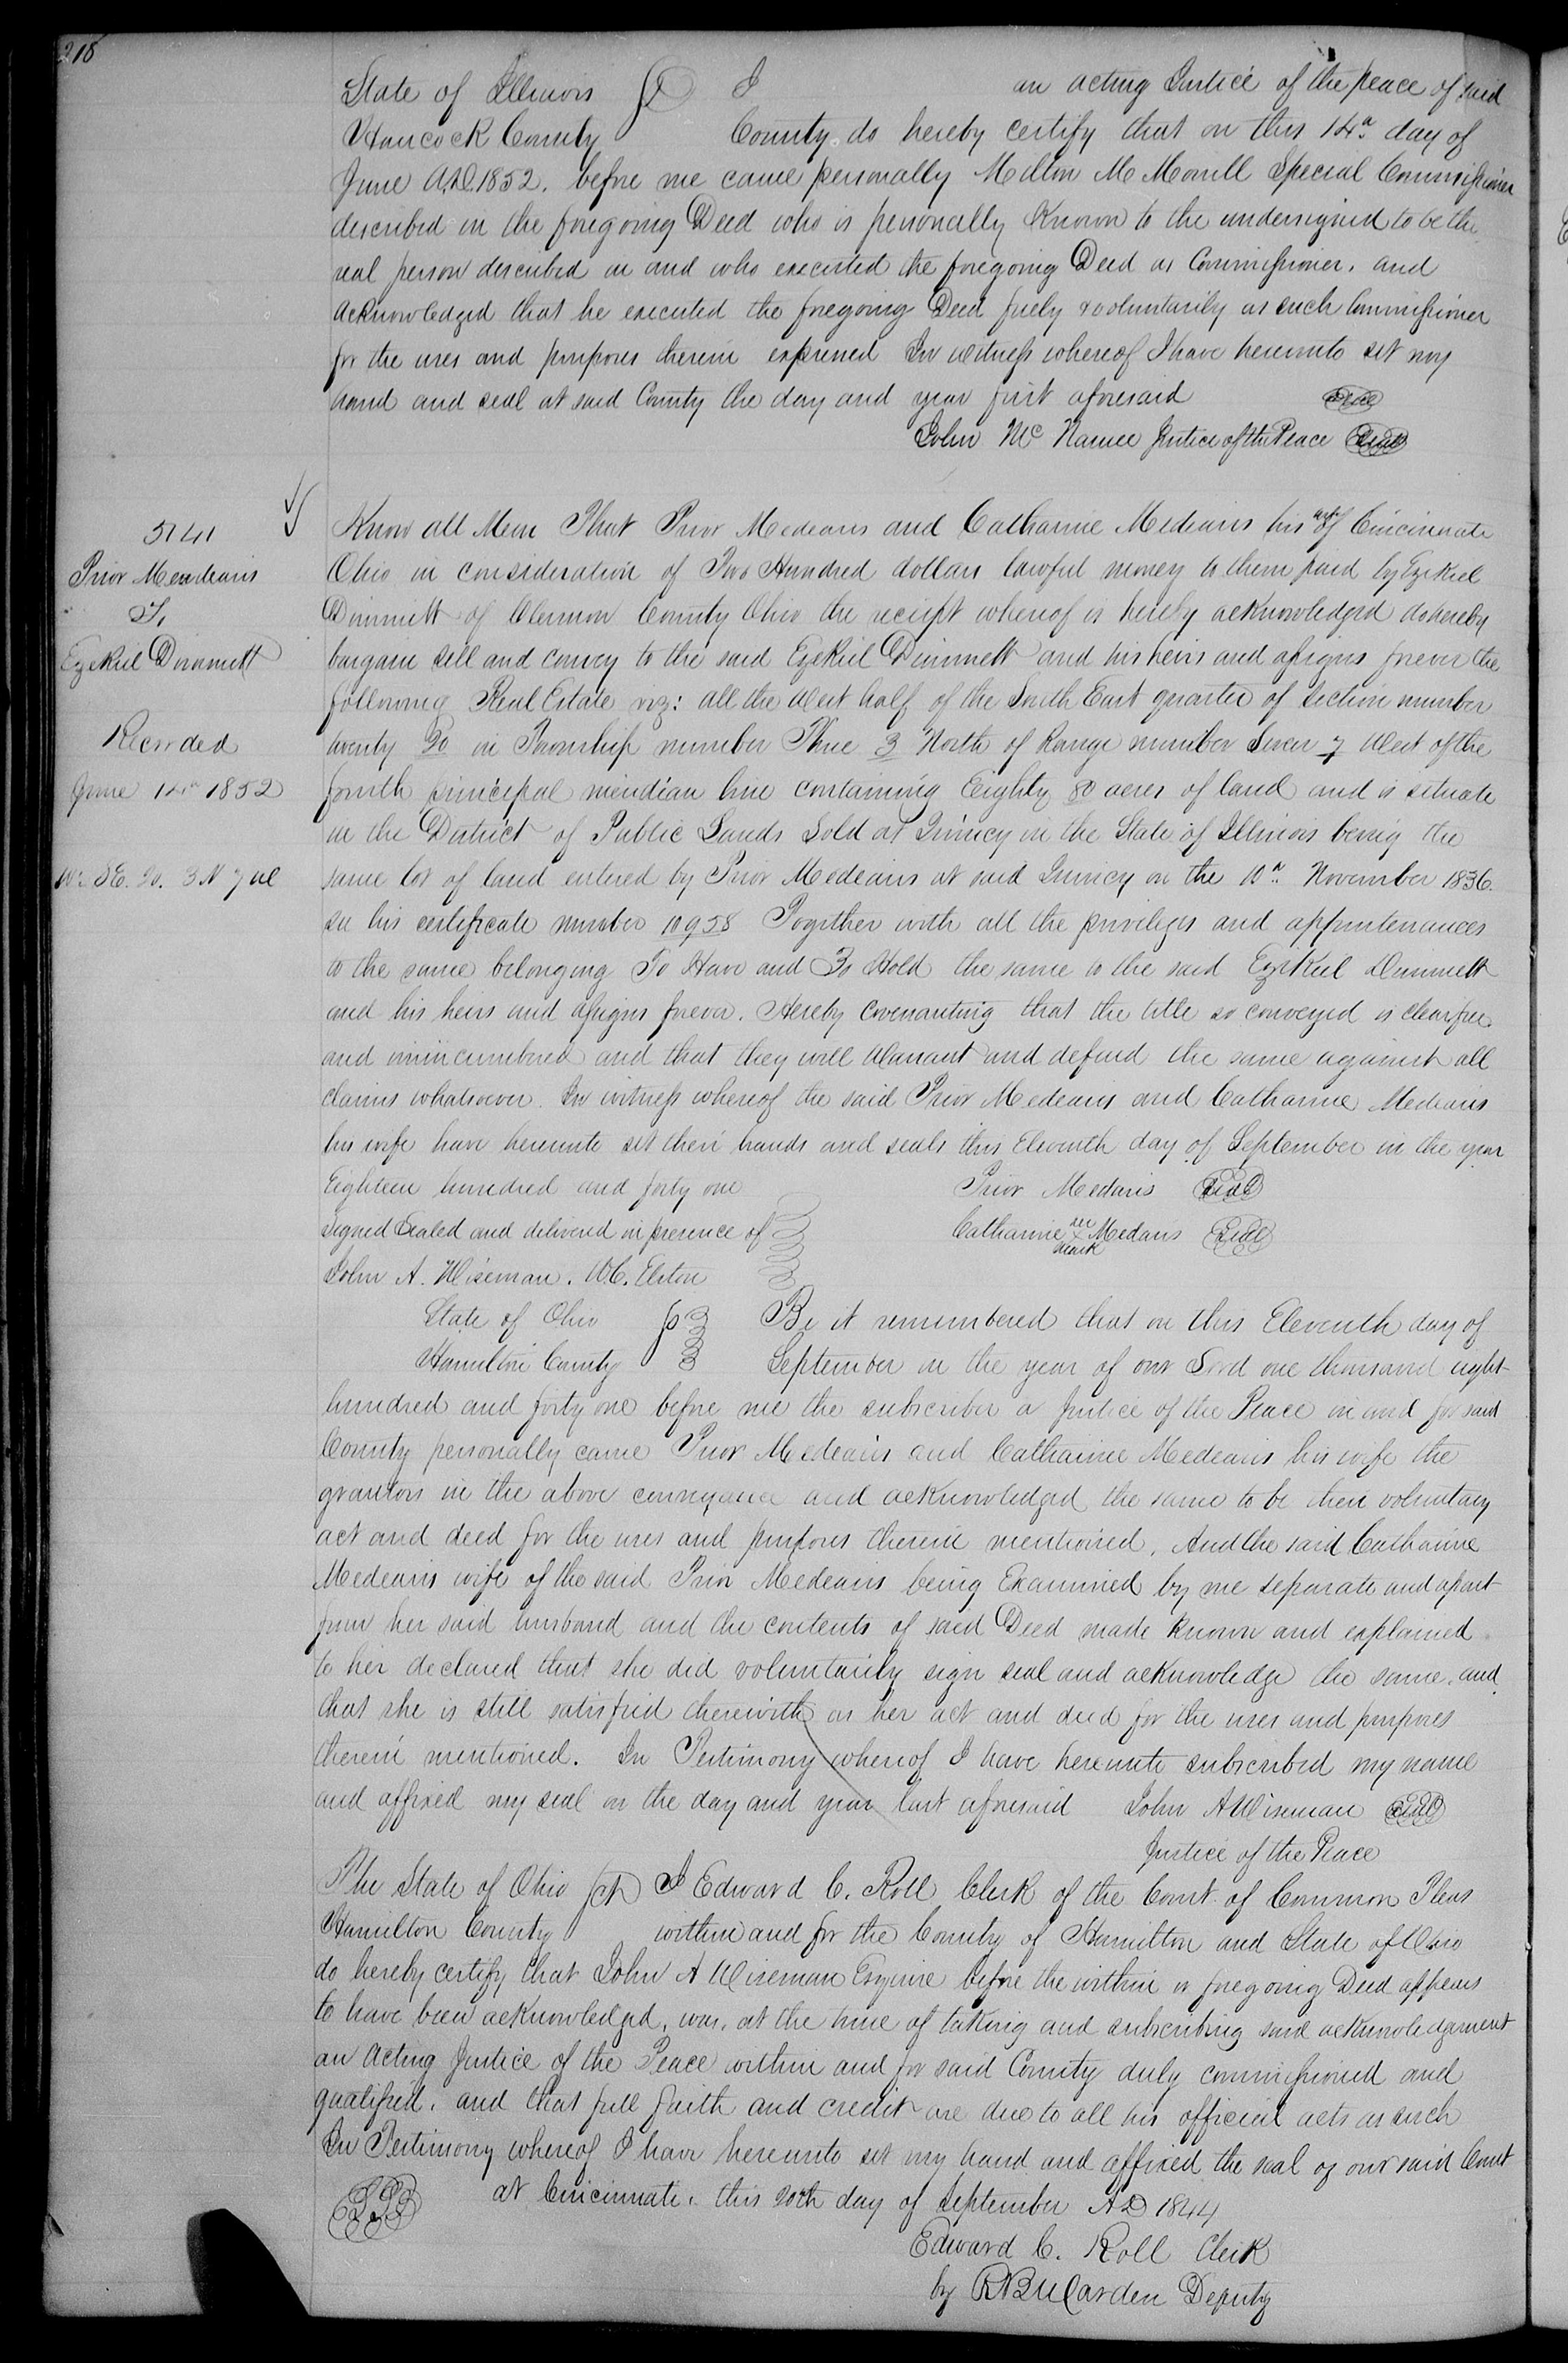 218
State of Illinois } I an acting Justice of the peace of said
Hancock County County do hereby certify that on this 14th day of
June A.D. 1852. before me came personally Milton M Morrill Special Commissioner
described in the foregoing Deed who is personally Known to the undersigned to be the
real person described in and who executed the foregoing Deed as Commissioner. and
acknowledged that he executed the foregoing Deed freely & voluntarily as such Commissioner
for the uses and purposes therein expressed In witness whereof I have hereunto set my
hand and seal at said County the day and year first aforesaid
John Mc Namee Justice of the Peace Seal
5141
Prior Mendeans
To
Ezekiel Dimmett
Recorded
June 14th 1852
W½ SE. 20. 3 N 7 W
Know all Men That Prior Medeans and Catharine Medeans his wife of Cincinnate
Ohio in consideration of Two Hundred dollars lawful money to them paid by Ezekiel
Dimmett of Clermon County Ohio the receipt whereof is hereby acknowledged do hereby
bargain sell and convey to the said Ezekiel Dimmett and his heirs and assigns forever the
following Real Estate viz: all the West half of the South East quarter of section number
twenty 20 in Township number Three 3 North of Range number Seven 7 West of the
fourth principal meridian line containing Eighty 80 acres of land and is situate
in the District of Public Lands Sold at Quincy in the State of Illinois being the
same lot of land entered by Prior Medeans at said Quincy on the 10th November 1836.
see his certificate number 10958 Together with all the privileges and appurtenances
to the same belonging To Have and To Hold the same to the said Ezekiel Dimmett
and his heirs and assigns forever. Hereby covenanting that the title so conveyed is clear free
and unincumbered and that they will Warrant and defend the same against all
claims whatsoever. In witness whereof the said Prior Medeans and Catharine Medeans
his wife have hereunto set their hands and seals this Eleventh day of September in the year
Eighteen hundred and forty one Prior Medans Seal
Signed Sealed and delivered in presence of Catharine her x mark Medans Seal
John A. Wiseman. W.C. Elston
State of Ohio } Be it remembered that on this Eleventh day of
Hamilton County September in the year of our Lord one thousand eight
hundred and forty one before me the subscriber a Justice of the Peace in and for said
County personally came Prior Medeans and Catharine Medeans his wife the
grantors in the above conveyance and acknowledged the same to be their voluntary
act and deed for the uses and purposes therein mentioned. And the said Catharine
Medeans wife of the said Prior Medeans being Examined by me separate and apart
from her said husband and the contents of said Deed made known and explained
to her declared that she did voluntarily sign seal and acknowledge the same. and
that she is still satisfied therewith as her act and deed for the uses and purposes
therein mentioned. In Testimony whereof I have hereunto subscribed my name
and affixed my seal on the day and year last aforesaid John A Wiseman Seal
Justice of the Peace
The State of Ohio } I Edward C. Roll Clerk of the Court of Common Pleas
Hamilton County within and for the County of Hamilton and State of Ohio
do hereby certify that John A Wiseman Esquire before the within or foregoing Deed appears
to have been acknowledged, was, at the time of taking and subscribing said acknowledgement
an Acting Justice of the Peace within and for said County duly commissioned and
qualified. and that full faith and credit are due to all his official acts as such
In Testimony whereof I have hereunto set my hand and affixed the seal of our said Court
at Cincinnate. this 20th day of September AD 1844
Edward C. Roll Clerk
by Deputy